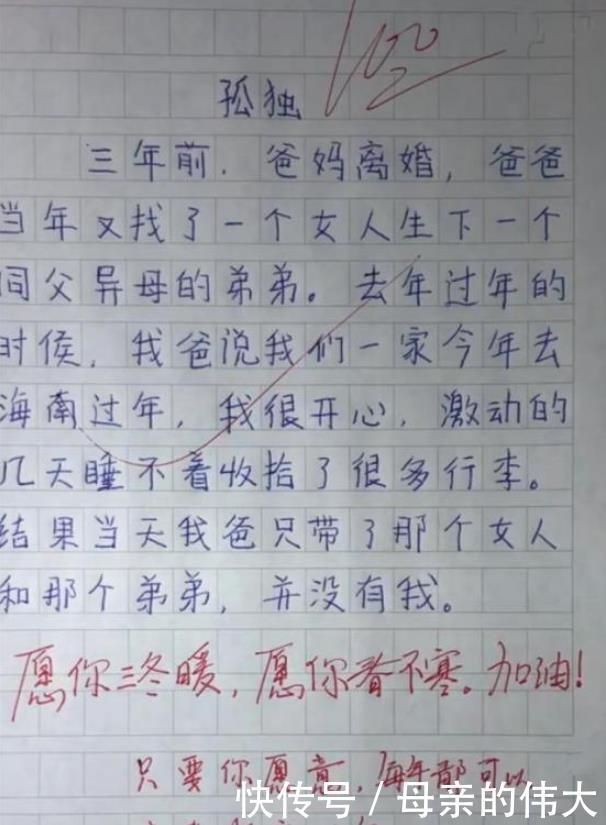 100
孤独
三年前，爸妈离婚，爸爸
当年又找了一个女人生下一个
同父异母的弟弟。去年过年的
时侯，我爸说我们一家今年去
海南过年，我很开心，激动的
几天睡不着收拾了很多行李。
结果当天我爸只带了那个女人
和那个弟弟，并没有我。
愿你三冬暖，愿你春不寒。加油！
只要你愿意，每年都可以
快传号/母亲的伟大